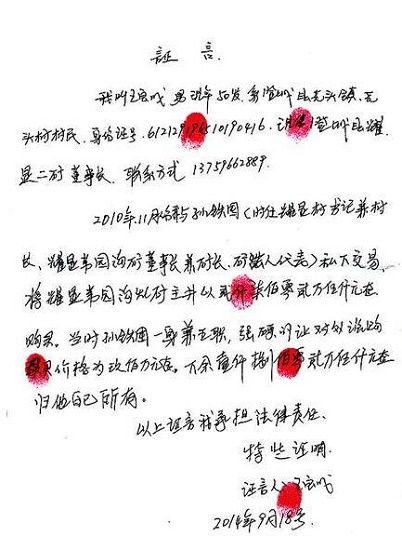 証言
我叫王宏成 男 现年50岁,系澄城县尧头镇尧
头村村民,身份证号.612129196510190416.现任澄城县耀
显二矿董事长,联系方式13759662889.
2010年11月给我与孙铁囤(时任耀显村书记兼村
长、耀显茅园沟矿董事长兼矿长、矿法人代表)私下交易,
将耀显茅园沟煤矿主井以 仟柒佰零贰万伍仟元
购买。当时孙铁囤一身兼五职,强硬的让对外说购
买价格为玖佰万元整。下余壹仟捌佰零贰万伍仟元
归他自己所有。
以上证言我承担法律责任.
特此证明.
证言人:王宏成
2014年9月18号.